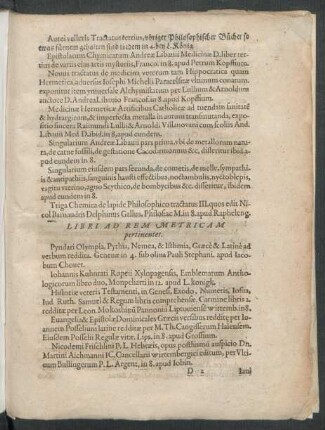 Aurei velleris Tractatus tertius, vbriger Philosophischer Bücher so
Epistolarum Chymicarum Andreæ Libauij Medicinæ D. liber tertius
de variis eius artis mysteriis, Francof. in 8. apud Petrum Kopffium.
Nouus tractatus de medicina veterum tam Hippocratica quam
Hermetica
exportat item vniuersale Alchymistarum per Lullium & Arnoldum
auctore D. Andrea Libauio Francof. in 8. apud Kopffium.
Medicinæ Hermeticæ Artificibus Catholicæ ad tuendam sanitatẽ
& hydrargyrum, & imperfecta metalla in aurum transmutanda, expositio
sincera Raimundi Lulli & Arnoldi Villanovani cum scoliis And.
Libauii Med. D. ibid. in 8. apud eundem.
Singularium Andreæ Libauii pars prima, vbi de metallorum natura,
de carne fossili, de gestatione Cacodæmonum &c. disseritur ibid. apud
eundem in 8.
Singularium eiusdem pars secunda, de cometis, de melle, sympathiis
& antipathiis, sanguinis effectibus, noctambulis, nyctobiepis,
vagitu vterino, agno Scythico, de bombycibus &c. disseritur, ibidem
apud eundem in 8.
Triga Chemica de lapide Philosophico tractatus III. quos edit Nicol
Barnaudus Delphinus Gallus, Philosoc. M. in 8. apud Rapheleng.
LIBRI AD REM METRICAM
pertinentes.
Pyndari Olympia, Pythia, Nemea, & Isthmia, Græcè & Latinè ad
verbum reddita. Geneuæ in 4. sub oliua Pauli Stephani, apud Iacobum
Chouet.
Iohannis Kuhnrati Ropsci Xylopagensis, Emblematum Anthologicorum
libri duo,
Historiæ veteris Testamenti, in Genesi, Exodo, Numeris, Iosua,
Iud. Ruth. Samuel & Regum libris comprehensæ. Carmine libris 2.
redditæ per Leon. in 8.
Euangelia & Epistolæ Dominicales Græcis versibus redditæ per Ioannem
Posselium latine redditæ per M. Th. Cangisserum Halensem.
Eiusdem Posselii Regulæ vitæ. Lips. in 8. apud Grossium.
Nicodemi Frischlini P. L. Hebæis, opus posthumum auspicio Dn.
Martini Aichmanni IC. Cancellarii wirtembergici editum, per Vlricum
Bollingerum P. L. Argent. in 8. apud Iobin.
D 2